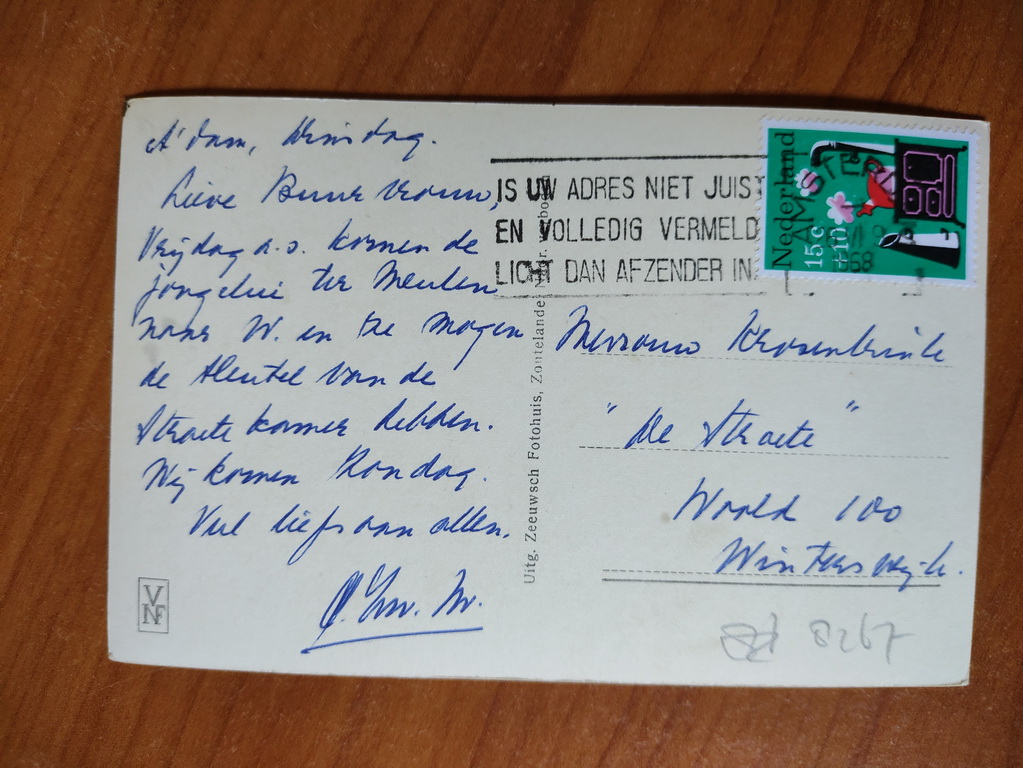 A'dam, Dinsdag.
Lieve Buurvrouw,
Vrijdag a.s. komen de
jongelui ter Meulen
naar W. en ze mogen
de sleutel van de
Straete kamer hebben.
Wij komen Zondag.
Veel liefs aan allen.
VNF
Uitg. Zeeuwsch Fotohuis, Zoutelande
IS UW ADRES NIET JUIST
EN VOLLEDIG VERMELD
LICHT DAN AFZENDER IN
AMSTERD
1968
Nederland
15c
+10
Mevrouw
"de Straete"
Woold 100
Winterswijk.
8267